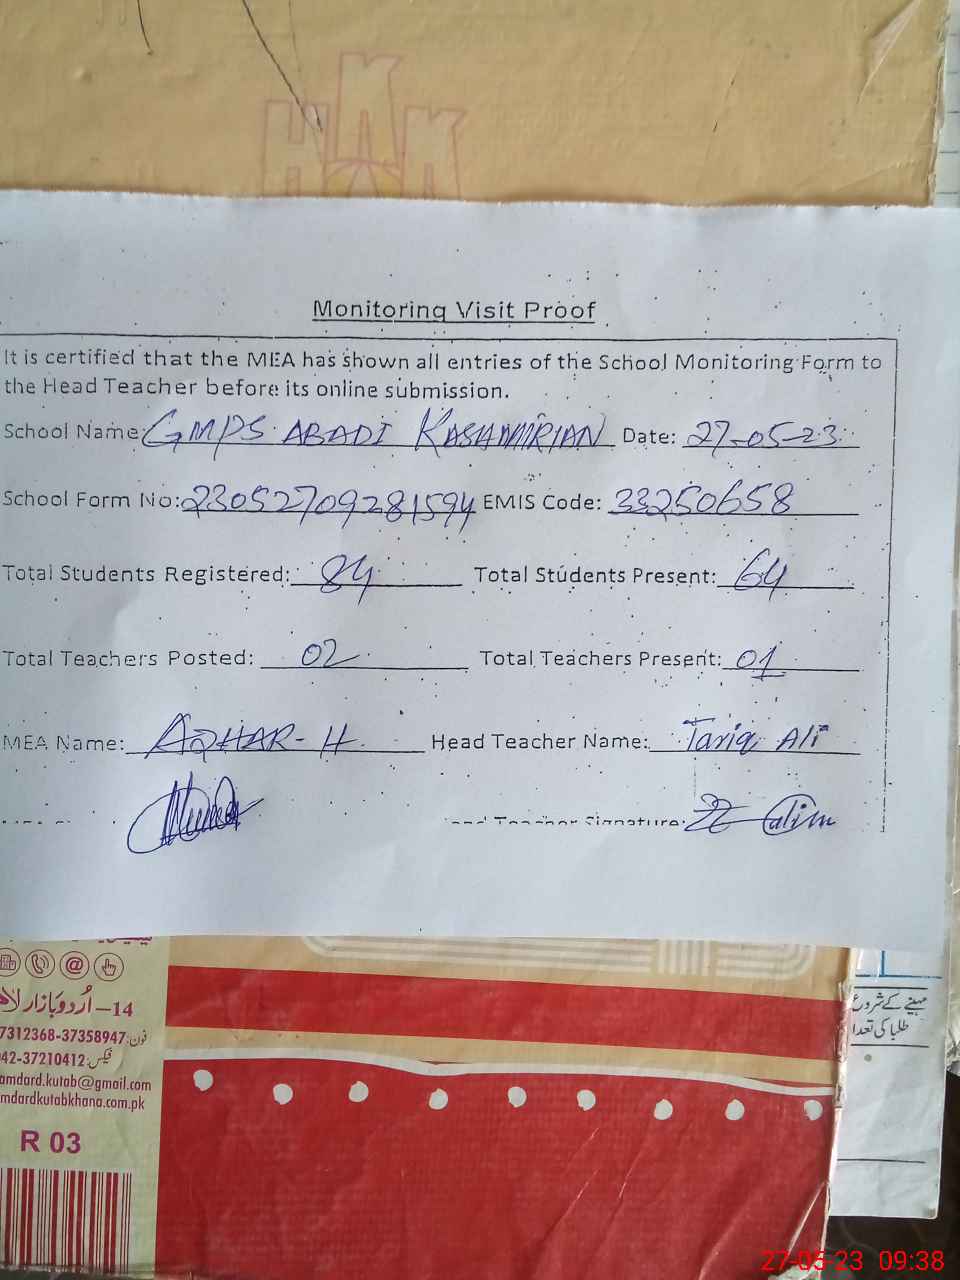 HKK
Monitoring Visit Proof
It is certified that the MEA has shown all entries of the School Monitoring Form to
the Head Teacher before its online submission.
School Name: GMPS ABADI KASHMIRIAN Date: 27-05-23
School Form No: 23052709281594 EMIS Code: 33250658
Total Students Registered: 84 Total Students Present: 64
Total Teachers Posted: 02 Total Teachers Present: 01
MEA Name: AZHAR-H Head Teacher Name: Tariq Ali
Teacher Signature:
14-اُردو بازار
فون: 7312368-37358947
فیکس: 042-37210412
amdard.kutab@gmail.com
mdardkutabkhana.com.pk
R 03
مہینے کے شروع
طلبا کی تعدا
27-05-23 09:38